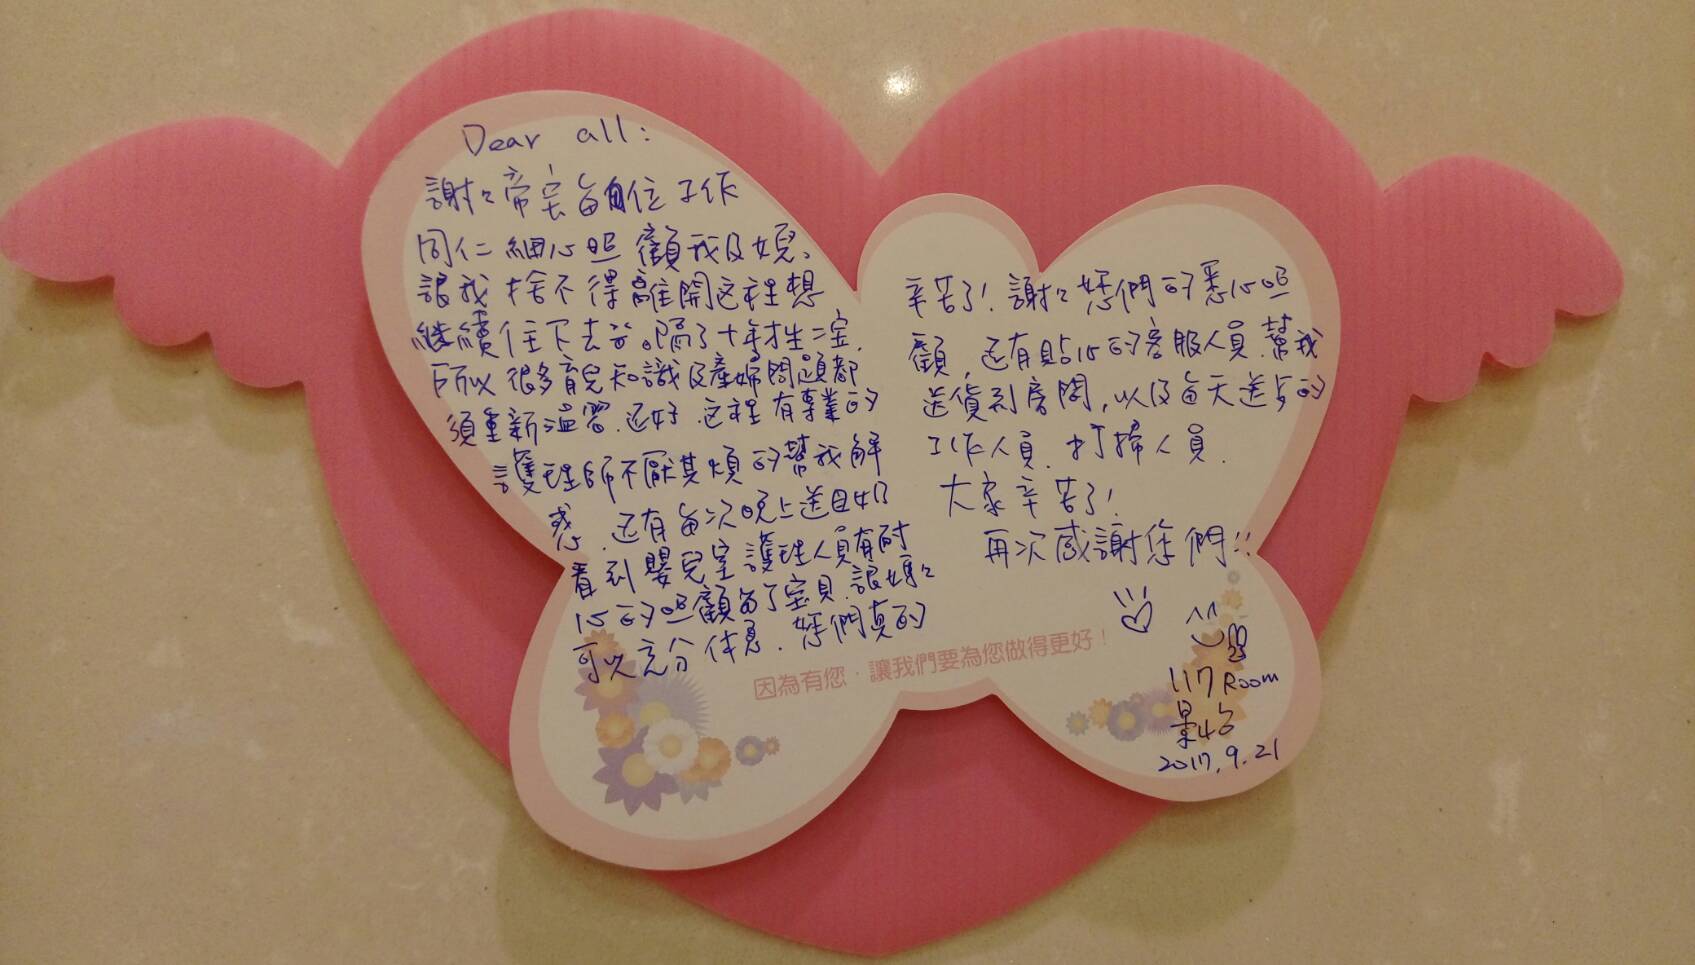 Dear all:
謝々帝宝每位工作
同仁細心照顧我及女兒。
讓我捨不得離開這裡想
繼續住下去。隔了十年才生二寶,
所以很多育兒知識及產婦問題都
須重新溫習.还好.这裡有專業的
護理師不厭其煩的幫我解
惑.还有每次晚上送母奶
看到嬰兒室護理人員有耐
心的照顧每个宝貝.讓媽々
可以充分休息.妳們真的
辛苦了!謝々妳們的悉心照
顧,还有貼心的客服人員.幫我
送貨到房間,以及每天送点的
工作人員.打掃人員.
大家辛苦了!
再次感謝您們!!
因為有您,讓我們要為您做得更好!
117 Room
2017.9.21